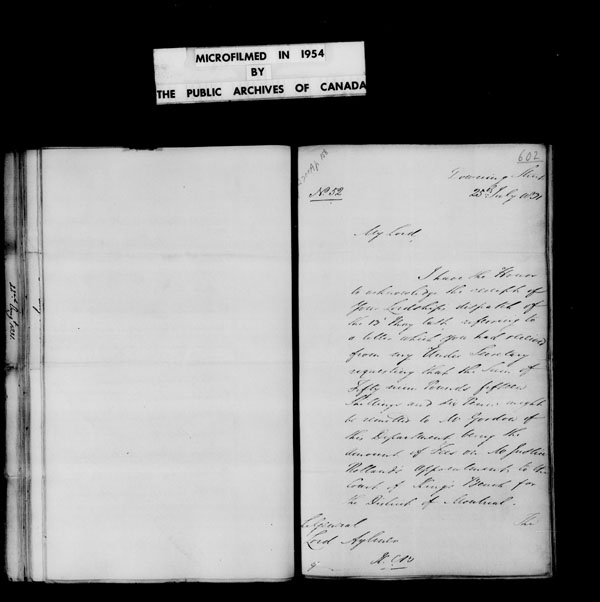 MICROFILMED IN 1954
BY
THE PUBLIC ARCHIVES OF CANADA
602
Downing Street
25th July 1831
No. 52
My Lord
I have the Honor
to acknowledge the receipt of
Your Lordship's despatch of
the 13 May last referring to
a letter which you had received
from my Under Secretary
requesting that the Sum of
Fifty nine Pounds fifteen
Shillings and Six Pence might
be remitted to Mr Gordon of
this Department being the
Amount of Fees on Mr Justice
Rolland's appointment to the
Court of King's Bench for
the District of Montreal.
The
Lt General
Lord Aylmer